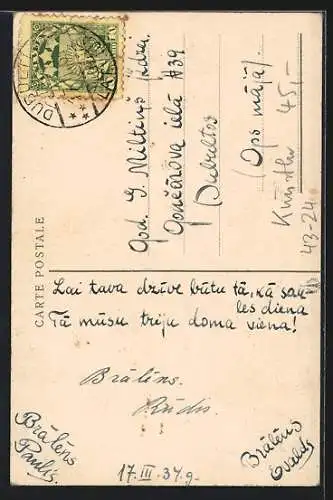 DUBULTI
LATVIJA
CARTE POSTALE
God. J. Miltiņš kdzei.
Gončārova ielā №39
Dubultos
(Ops mājā).
45,-
43-24
Lai tava dzīve būtu tā, kā sau-
les diena
Tā mūsu triju doma viena!
Brālēns.
Rūdis.
Brālēns
Paulis.
Brālēns
Evalds
17. III. 34. g.